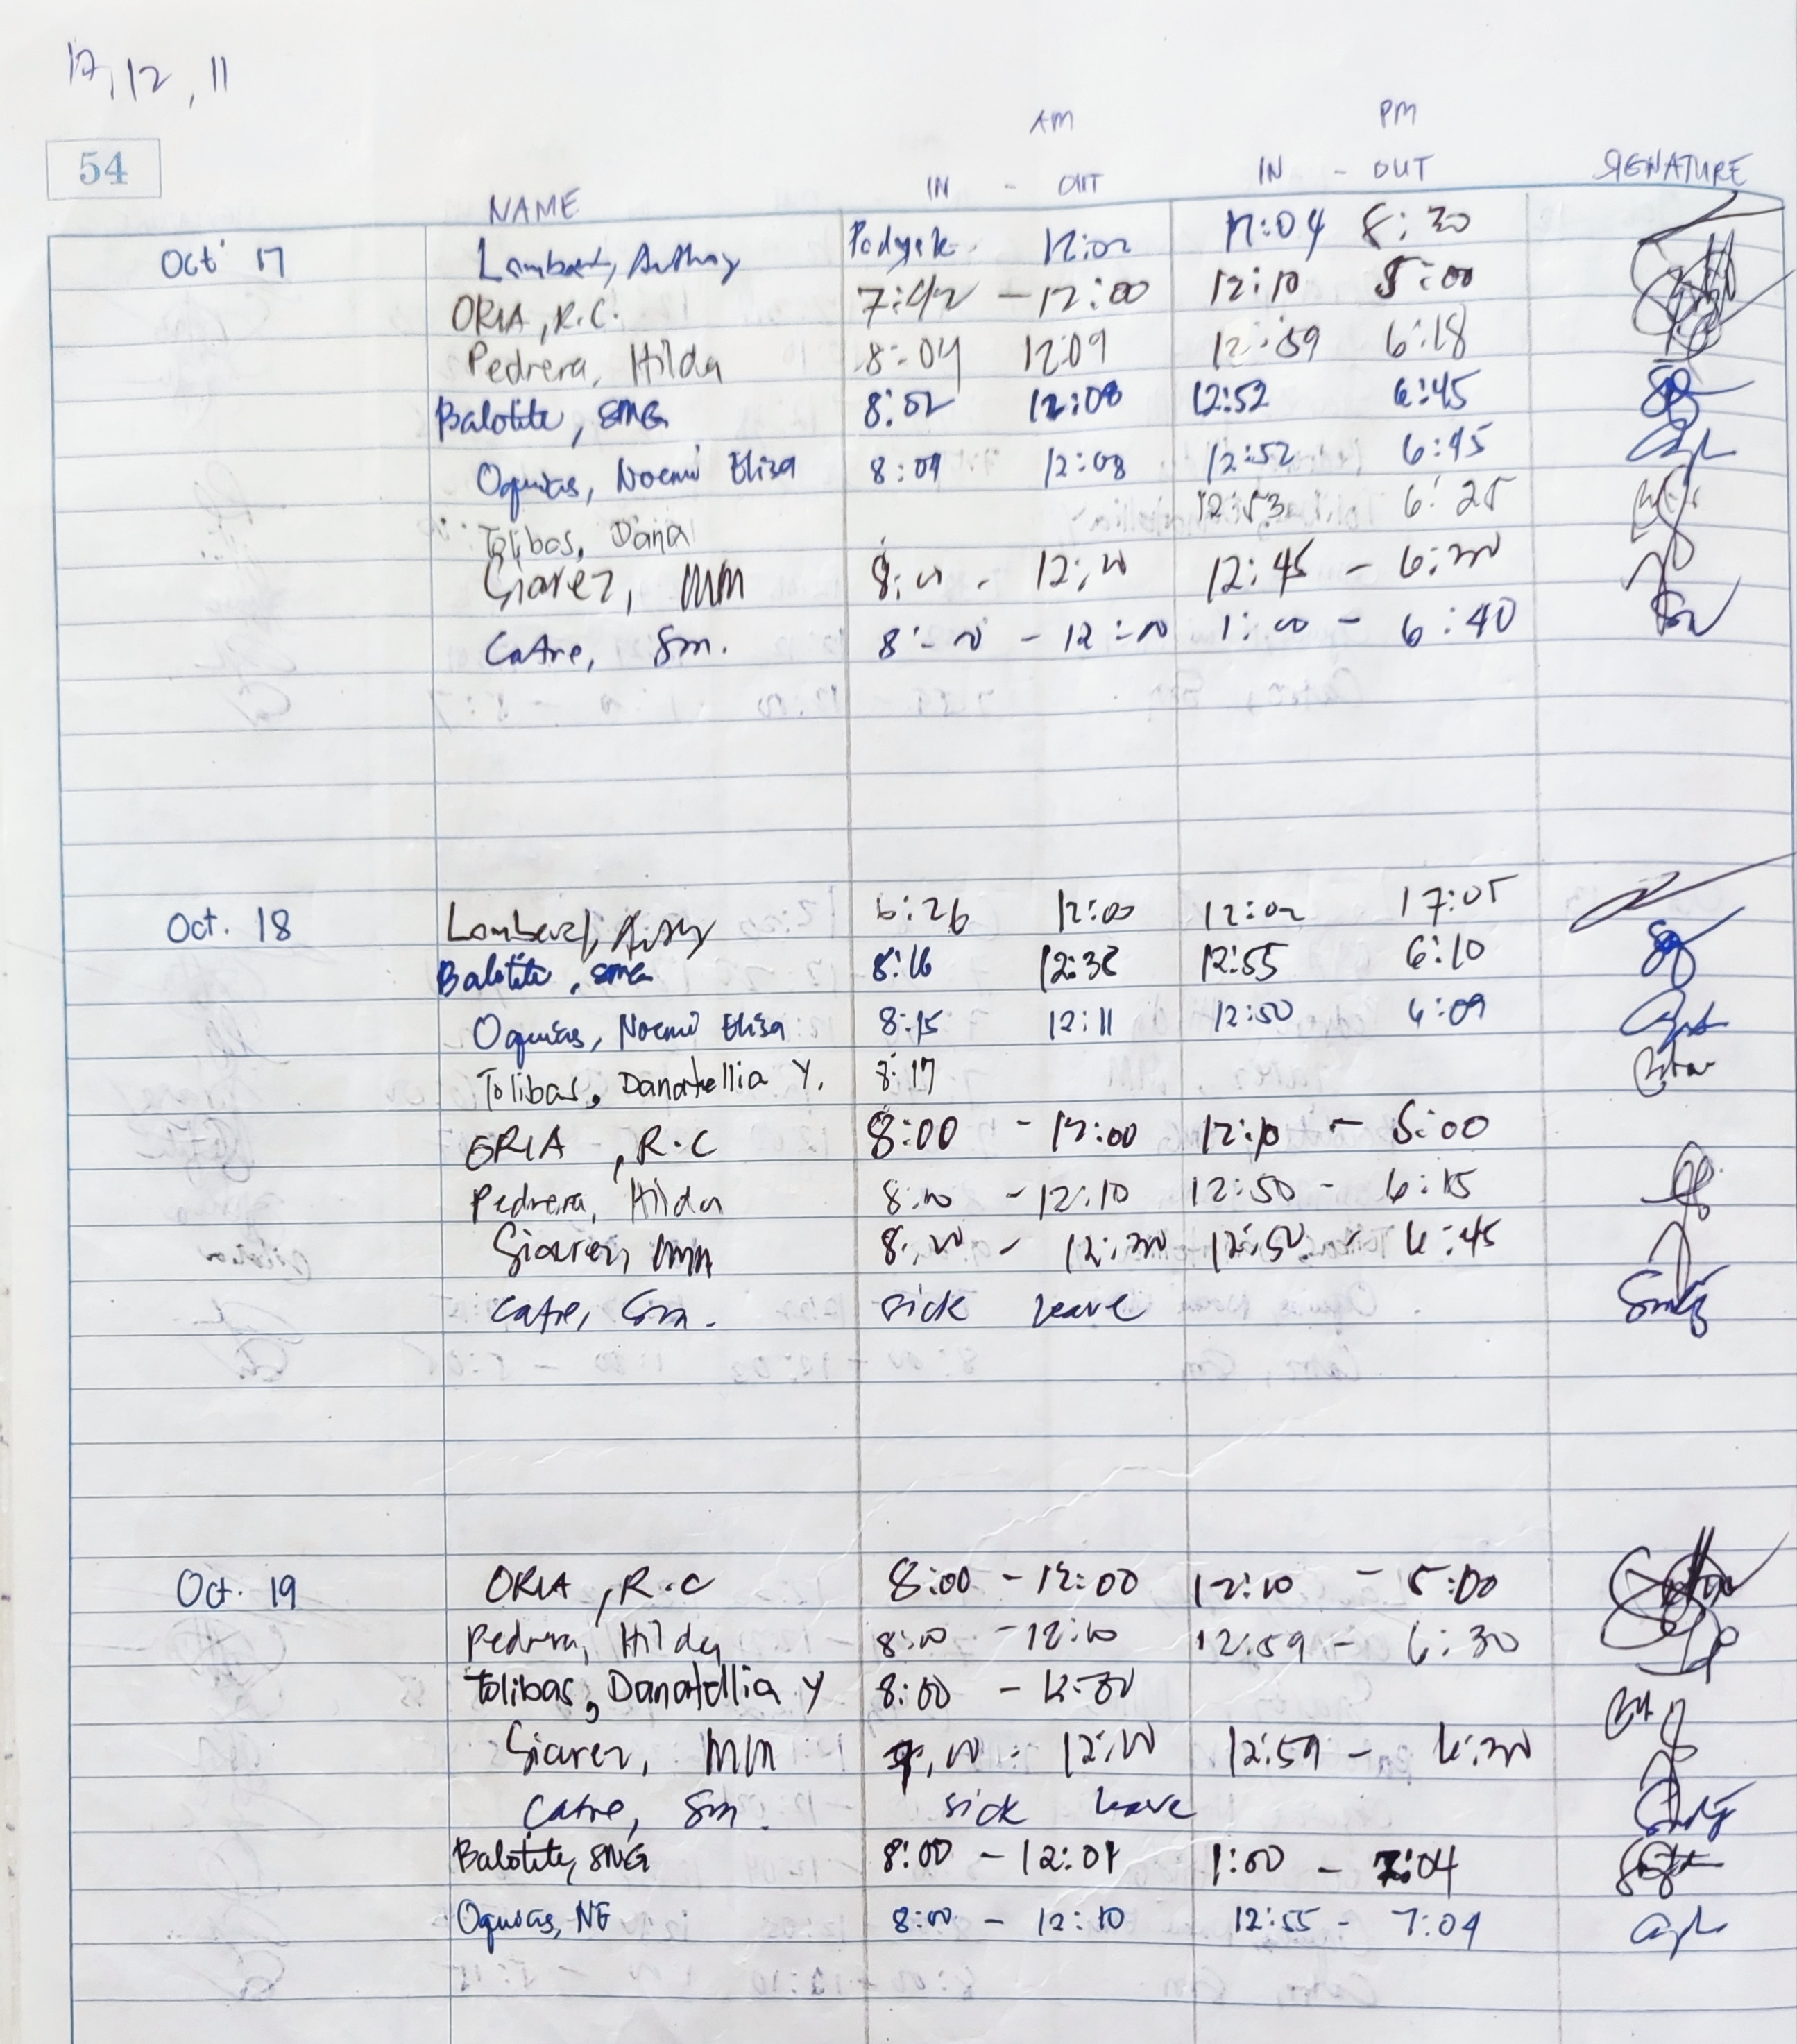 17, 12, 11
AM PM
54
NAME IN - OUT IN - OUT SIGNATURE
Oct 17 12:02 17:04 8:30
ORIA, R.C. 7:42 - 12:00 12:10 5:00
Pedrera, Hilda 8:04 12:09 12:59 6:18
Balotite, SMG 8:02 12:08 12:52 6:45
Oquias, Noemi Eliza 8:09 12:08 12:52 6:45
Tolibas, Dana 12:53 6:25
Siarez, MM 8:00 - 12:10 12:45 - 6:30
Catre, Sm. 8:00 - 12:00 1:00 - 6:40
Oct. 18 6:26 12:00 12:02 17:05
Balotite, SMG 8:16 12:32 12:55 6:10
Oquias, Noemi Eliza 8:15 12:11 12:50 6:09
Tolibas, Danatellia Y. 8:17
ORIA, R.C 8:00 - 12:00 12:10 - 5:00
Pedrera, Hilda 8:10 - 12:10 12:50 - 6:15
Siarez, MM 8:20 - 12:30 12:50 - 6:45
Catre, Sm. sick leave
Oct. 19 ORIA, R.C 8:00 - 12:00 12:10 - 5:00
Pedrera, Hilda 8:10 - 12:10 12:59 - 6:30
Tolibas, Danatellia Y 8:00 - 12:00
Siarez, MM 12:10 12:59 - 6:30
Catre, Sm. sick leave
Balotite, SMG 8:00 - 12:01 1:00 - 7:04
Oquias, NE 8:00 - 12:10 12:55 - 7:04